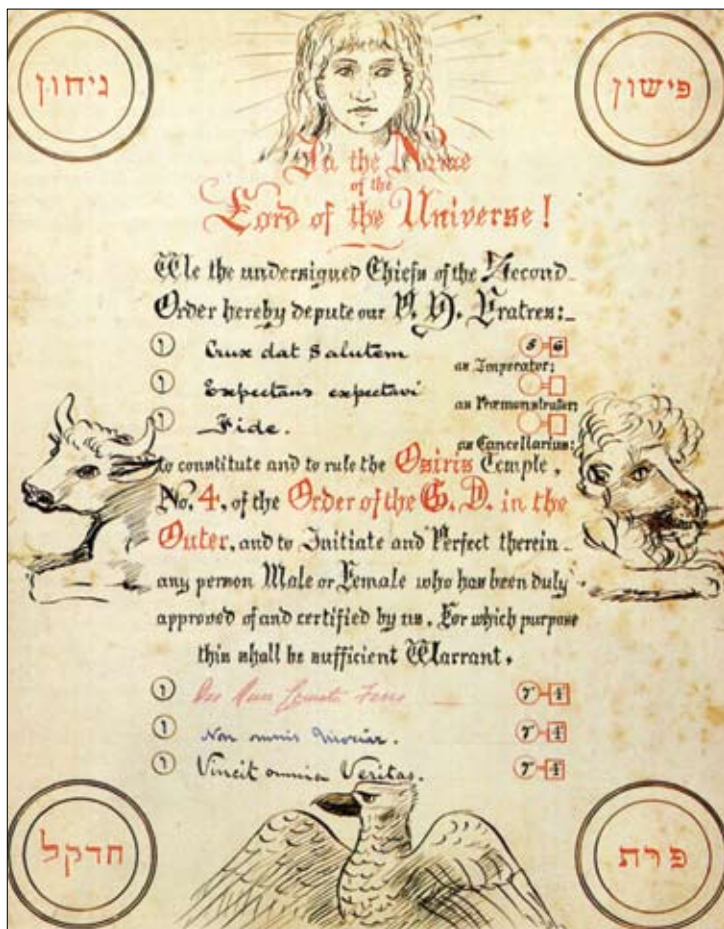 גיחון
פישון
In the Name
of the
Lord of the Universe!
We the undersigned Chiefs of the Second
Order hereby depute our V. H. Fratres:_
Crux dat Salutem 5 = 6
as Imperator;
Expectans expectavi
as Præmonstrator;
Fide.
as Cancellarius;
to constitute and to rule the Osiris Temple,
No. 4, of the Order of the G. D. in the
Outer, and to Initiate and Perfect therein
any person Male or Female who has been duly
approved of and certified by us. For which purpose
this shall be sufficient Warrant.
Deo Duce Comite Ferro 7 = 4
Non omnis Moriar. 7 = 4
Vincit omnia Veritas. 7 = 4
חדקל
פרת